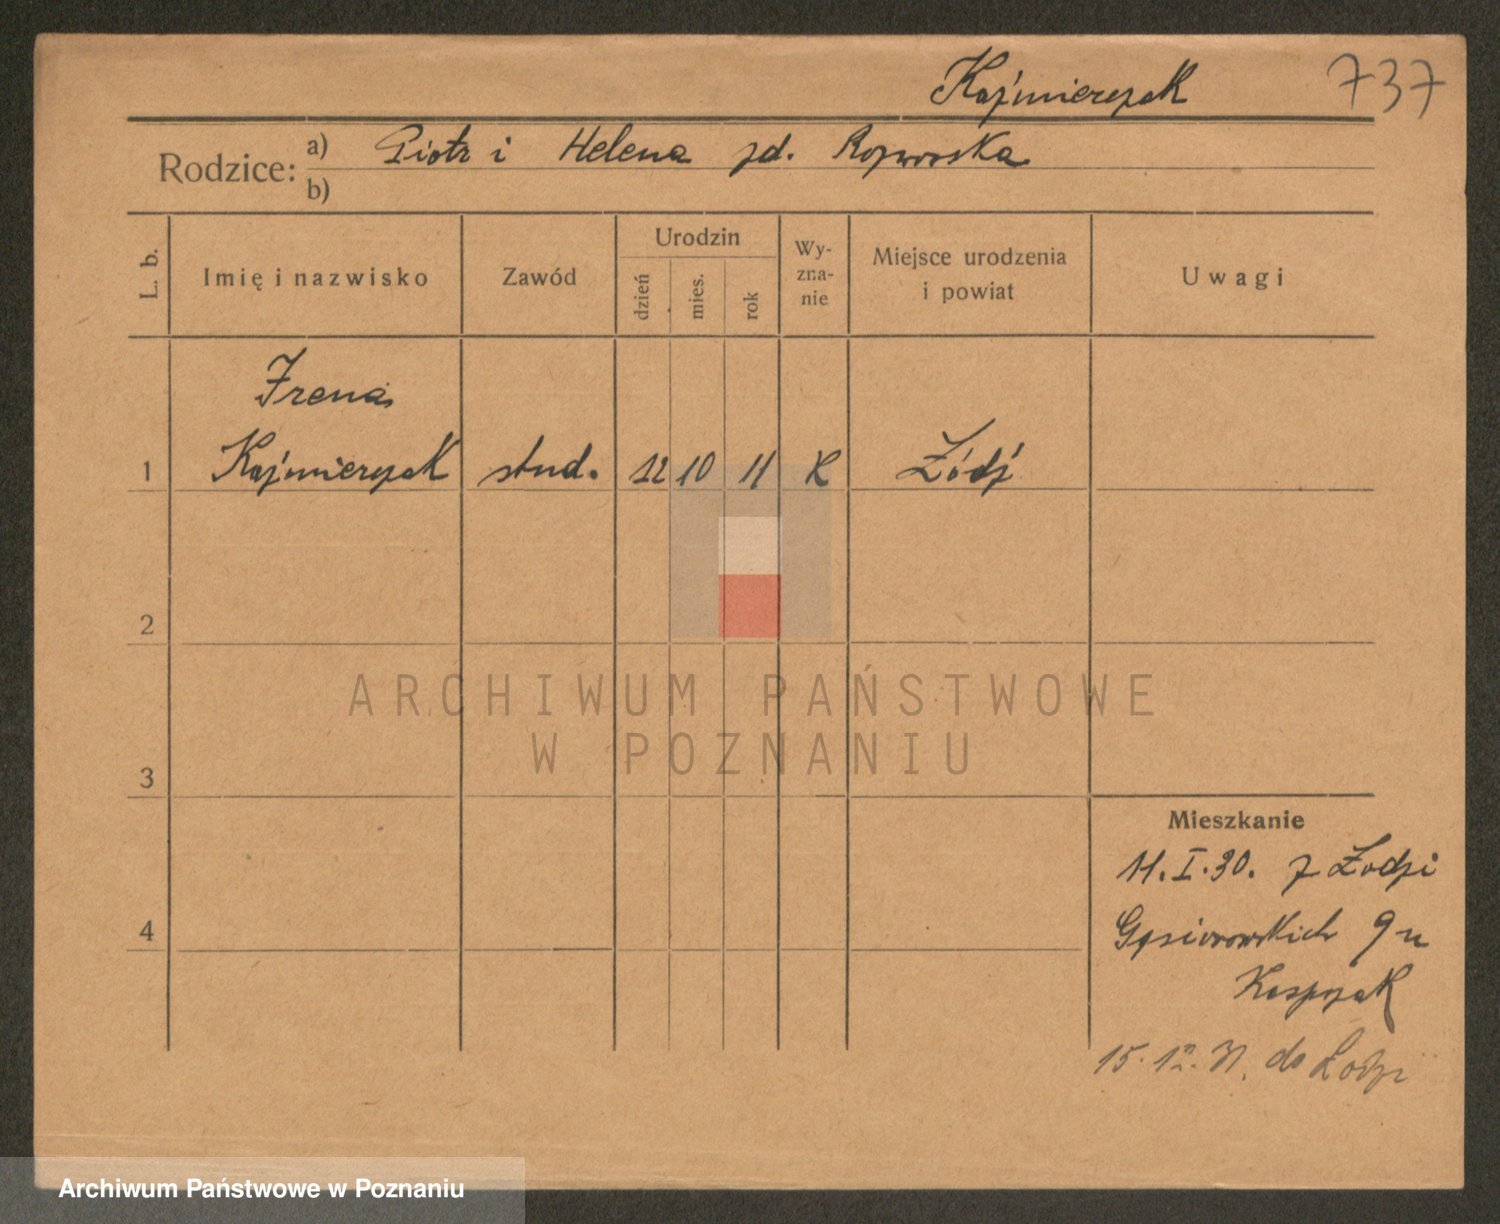 Kaźmierczak 737
Rodzice: a) Piotr i Helena zd. Rozworska
b)
L. b. Imię i nazwisko Zawód Urodzin dzień mies. rok Wyznanie Miejsce urodzenia i powiat Uwagi
Irena
1 Kaźmierczak stud. 12 10 11 R Łódź
2
3
4
Mieszkanie
11.I.30. z Łodzi
Gąsiorowskich 9 u
Kasprzak
15.12.31. do Łodzi
ARCHIWUM PAŃSTWOWE
W POZNANIU
Archiwum Państwowe w Poznaniu